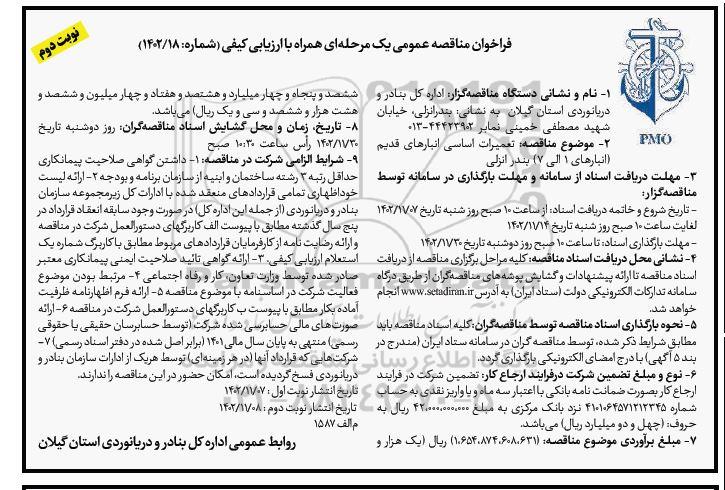 نوبت دوم
فراخوان مناقصه عمومی یک مرحله‌ای همراه با ارزیابی کیفی (شماره: ۱۴۰۲/۱۸)
PMO
۱- نام و نشانی دستگاه مناقصه‌گزار: اداره کل بنادر و
دریانوردی استان گیلان به نشانی: بندرانزلی، خیابان
شهید مصطفی خمینی نمابر ۴۴۴۲۳۹۰۲-۰۱۳
۲- موضوع مناقصه: تعمیرات اساسی انبارهای قدیم
(انبارهای ۱ الی ۷) بندر انزلی
۳- مهلت دریافت اسناد از سامانه و مهلت بارگذاری در سامانه توسط
مناقصه‌گزار:
- تاریخ شروع و خاتمه دریافت اسناد: از ساعت ۱۰ صبح روز شنبه تاریخ ۱۴۰۲/۱۱/۰۷
لغایت ساعت ۱۰ صبح روز شنبه تاریخ ۱۴۰۲/۱۱/۱۴
- مهلت بارگذاری اسناد: تا ساعت ۱۰ صبح روز دوشنبه تاریخ ۱۴۰۲/۱۱/۳۰
۴- نشانی محل دریافت اسناد مناقصه: کلیه مراحل برگزاری مناقصه از دریافت
اسناد مناقصه تا ارائه پیشنهادات و گشایش پوشه‌های مناقصه‌گران از طریق درگاه
سامانه تدارکات الکترونیکی دولت (ستاد ایران) به آدرس www.setadiran.ir انجام
خواهد شد.
۵- نحوه بارگذاری اسناد مناقصه توسط مناقصه‌گران: کلیه اسناد مناقصه باید
مطابق شرایط ذکر شده، توسط مناقصه گران در سامانه ستاد ایران (مندرج در
بند ۵ آگهی) با درج امضای الکترونیکی بارگذاری گردد.
۶- نوع و مبلغ تضمین شرکت در فرایند ارجاع کار: تضمین شرکت در فرایند
ارجاع کار بصورت ضمانت نامه بانکی با اعتبار سه ماه و یا واریز نقدی به حساب
شماره ۴۱۰۱۰۶۴۵۷۱۲۱۲۳۴۵ نزد بانک مرکزی به مبلغ ۴۲،۰۰۰،۰۰۰،۰۰۰ ریال به
حروف: (چهل و دو میلیارد ریال) می‌باشد.
۷- مبلغ برآوردی موضوع مناقصه: (۱،۶۵۴،۸۷۴،۶۰۸،۶۳۱) ریال (یک هزار و
ششصد و پنجاه و چهار میلیارد و هشتصد و هفتاد و چهار میلیون و ششصد و
هشت هزار و ششصد و سی و یک ریال) می‌باشد.
۸- تاریخ، زمان و محل گشایش اسناد مناقصه‌گران: روز دوشنبه تاریخ
۱۴۰۲/۱۱/۳۰ رأس ساعت ۱۰:۳۰ صبح
۹- شرایط الزامی شرکت در مناقصه: ۱- داشتن گواهی صلاحیت پیمانکاری
حداقل رتبه ۳ رشته ساختمان و ابنیه از سازمان برنامه و بودجه ۲- ارائه لیست
خوداظهاری تمامی قراردادهای منعقد شده با ادارات کل زیرمجموعه سازمان
بنادر و دریانوردی (از جمله این اداره کل) در صورت وجود سابقه انعقاد قرارداد در
پنج سال گذشته مطابق با پیوست الف کاربرگهای دستورالعمل شرکت در مناقصه
و ارائه رضایت نامه از کارفرمایان قراردادهای مربوط مطابق با کاربرگ شماره یک
استعلام ارزیابی کیفی. ۳- ارائه گواهی تائید صلاحیت ایمنی پیمانکاری معتبر
صادر شده توسط وزارت تعاون، کار و رفاه اجتماعی ۴- مرتبط بودن موضوع
فعالیت شرکت در اساسنامه با موضوع مناقصه ۵- ارائه فرم اظهارنامه ظرفیت
آماده بکار مطابق با پیوست ب کاربرگهای دستورالعمل شرکت در مناقصه ۶- ارائه
صورت‌های مالی حسابرسی شده شرکت (توسط حسابرسان حقیقی یا حقوقی
رسمی) منتهی به پایان سال مالی ۱۴۰۱ (برابر اصل شده در دفتر اسناد رسمی) ۷-
شرکت‌هایی که قرارداد آنها (در هر زمینه‌ای) توسط هریک از ادارات سازمان بنادر و
دریانوردی فسخ گردیده است، امکان حضور در این مناقصه را ندارند.
تاریخ انتشار نوبت اول: ۱۴۰۲/۱۱/۰۷
تاریخ انتشار نوبت دوم: ۱۴۰۲/۱۱/۰۸
م الف ۱۵۸۷
روابط عمومی اداره کل بنادر و دریانوردی استان گیلان